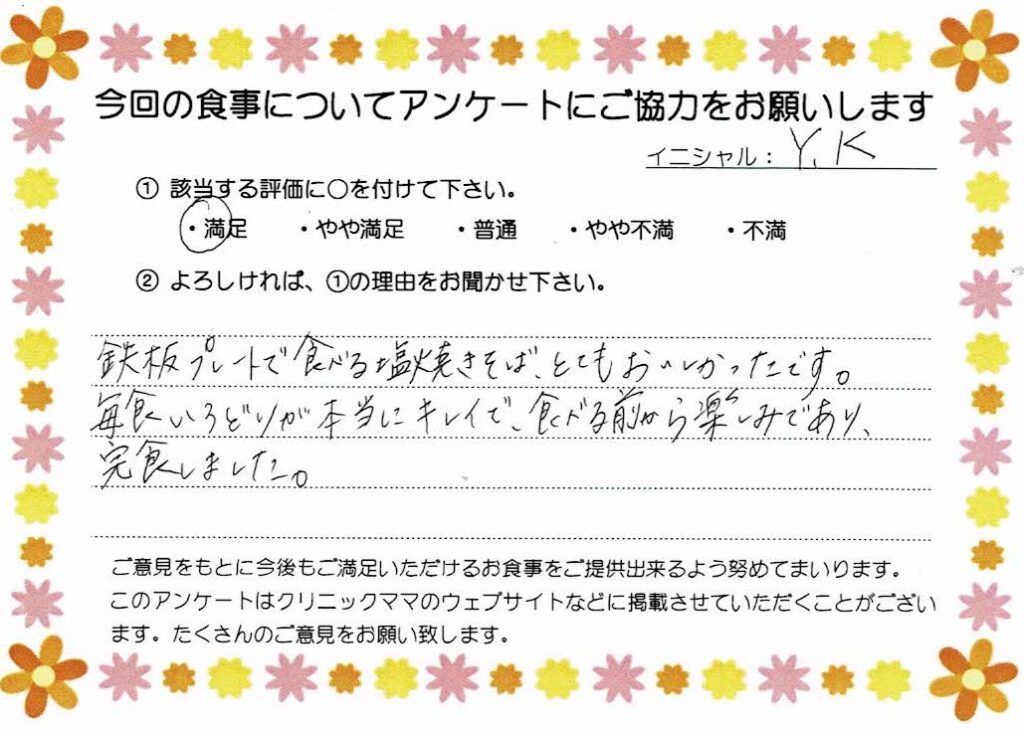 今回の食事についてアンケートにご協力をお願いします
イニシャル： Y.K
① 該当する評価に○を付けて下さい。
・満足 ・やや満足 ・普通 ・やや不満 ・不満
② よろしければ、①の理由をお聞かせ下さい。
鉄板プレートで食べる塩焼きそば、とてもおいしかったです。
毎食いろどりが本当にキレイで、食べる前から楽しみであり、
完食しました。
ご意見をもとに今後もご満足いただけるお食事をご提供出来るよう努めてまいります。
このアンケートはクリニックママのウェブサイトなどに掲載させていただくことがござい
ます。たくさんのご意見をお願い致します。